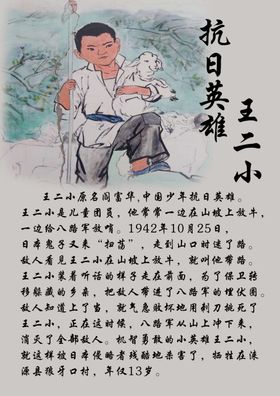 抗日英雄
王二小
王二小原名阎富华,中国少年抗日英雄。
王二小是儿童团员,他常常一边在山坡上放牛,
一边给八路军放哨。1942年10月25日,
日本鬼子又来“扫荡”,走到山口时迷了路。
敌人看见王二小在山坡上放牛,就叫他带路。
王二小装着听话的样子走在前面,为了保卫转
移躲藏的乡亲,把敌人带进了八路军的埋伏圈。
敌人知道上了当,就气急败坏地用刺刀挑死了
王二小,正在这时候,八路军从山上冲下来,
消灭了全部敌人。机智勇敢的小英雄王二小,
就这样被日本侵略者残酷地杀害了,牺牲在涞
源县狼牙口村,年仅13岁。